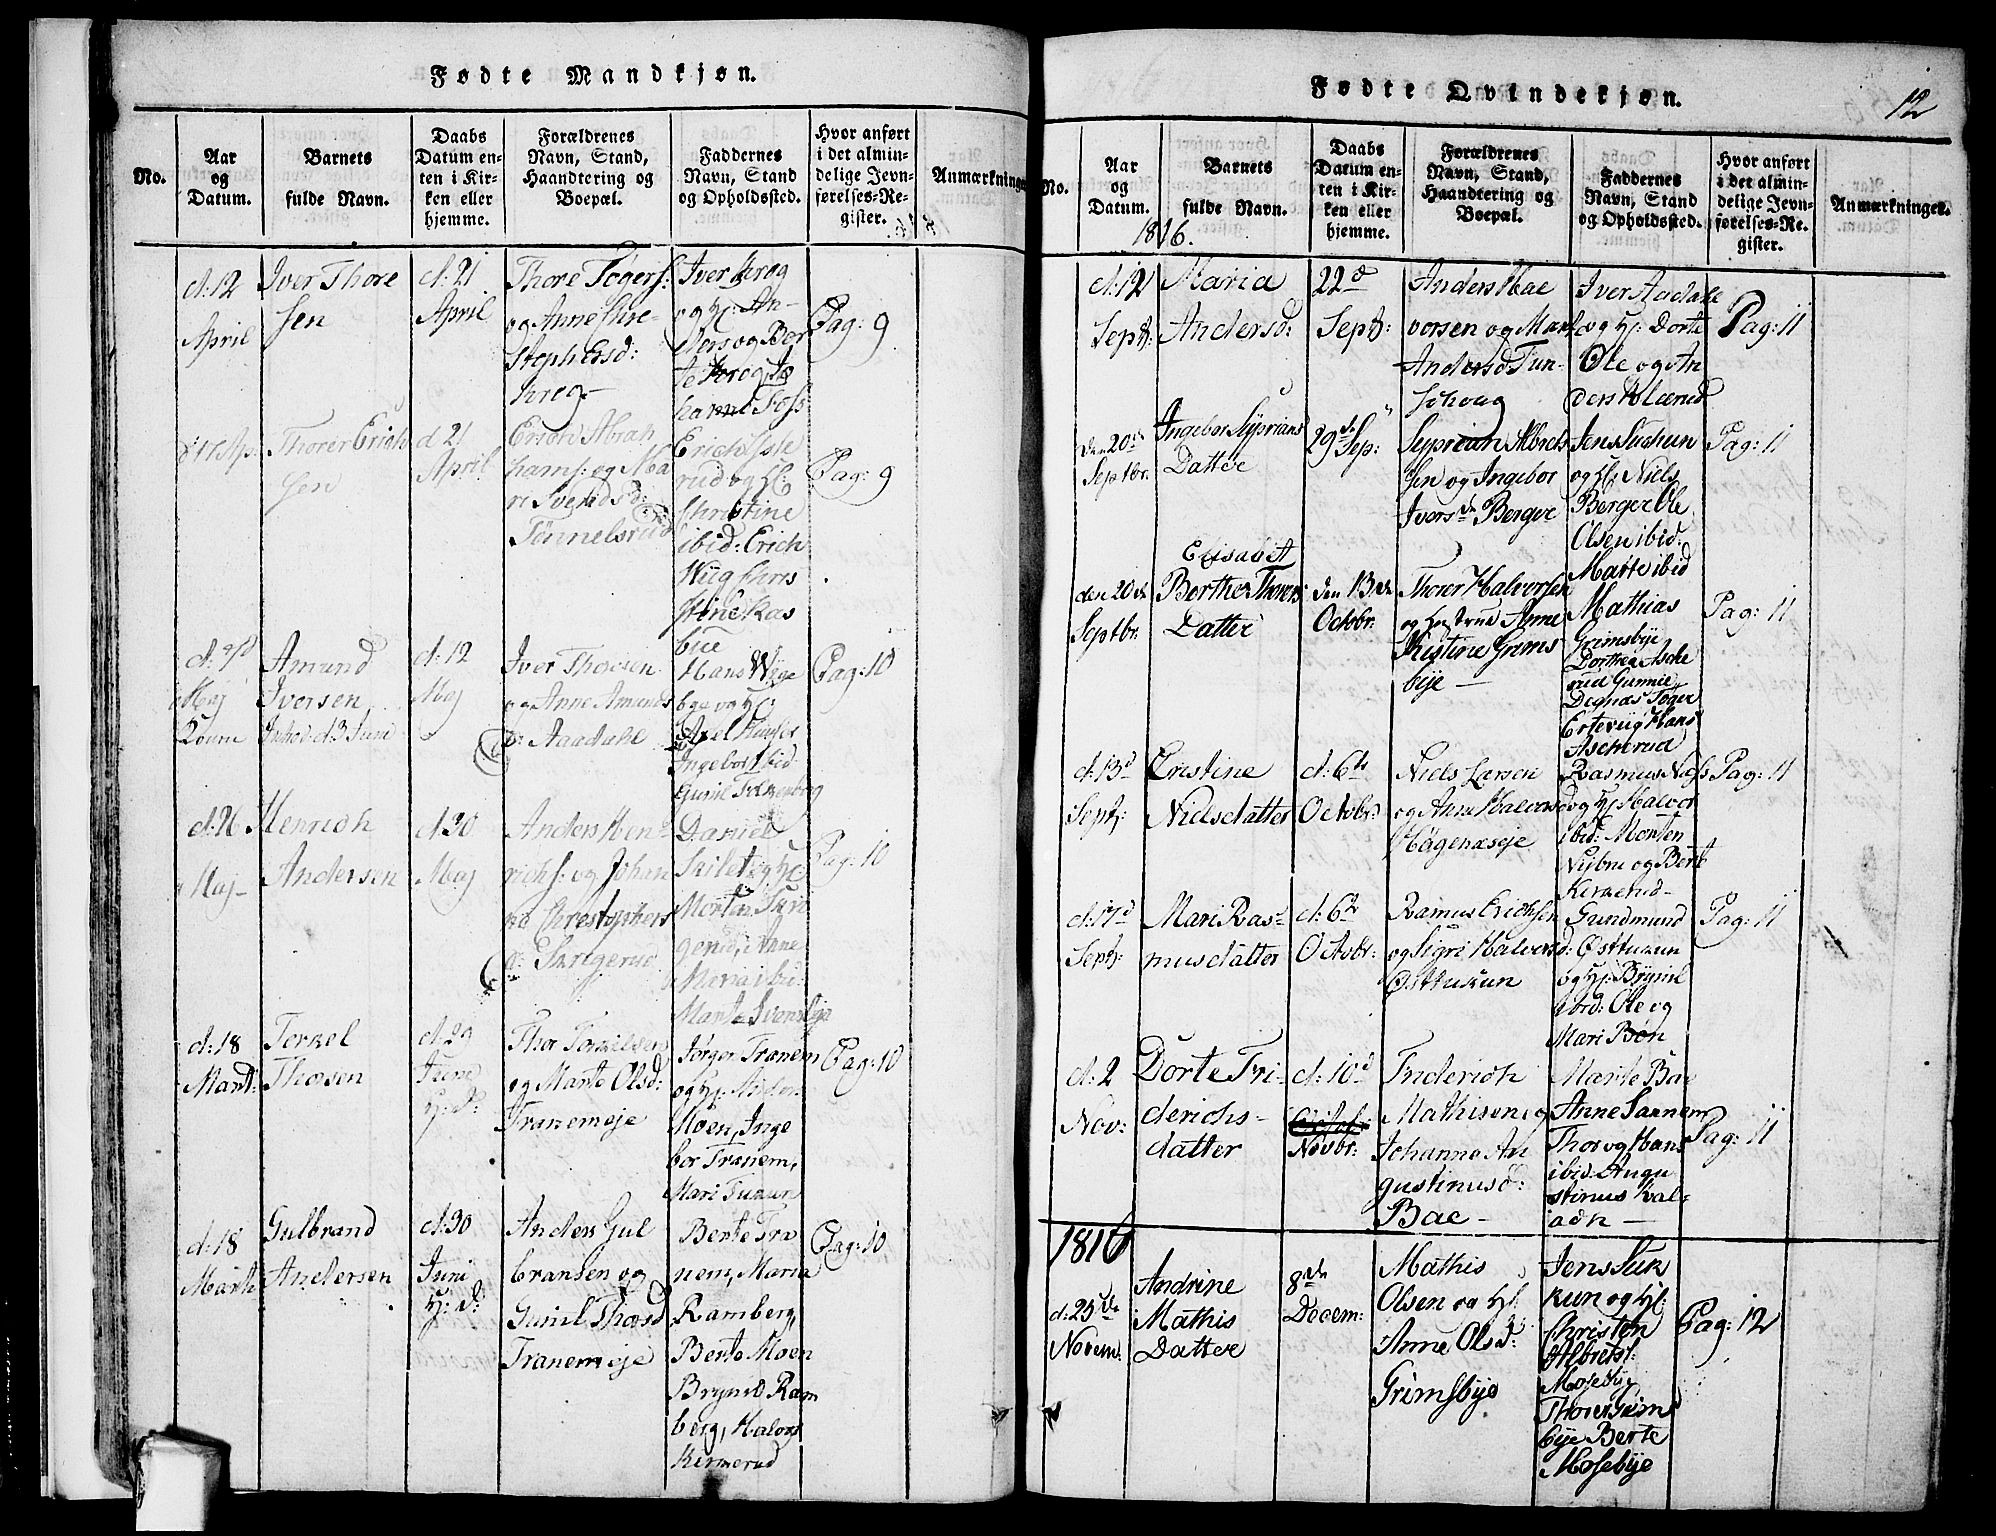 Fødte Mandkjøn.
No.
Aar
og
Datum.
Barnets
fulde Navn.
Daabs
Datum en-
ten i Kir-
ken eller
hjemme.
Forældrenes
Navn, Stand,
Haandtering og
Boepæl.
Faddernes
Navn, Stand
og Opholdssted.
Hvor anført
i det almin-
delige Jevn-
førelses-Re-
gister.
Anmærkninger
d: 12
April
Iver Thore
sen
d: 21
April
Thore Togers:
og Anne
Stephersd:
Krog-
Iver Krog
og Hj: An-
ders og Ber
te Krog
Foss
Pag: 9
Thorer Erich
sen
d 21
April
Abra
hams: og Ma
ri Svends d:
Tønnelsrud
Erich
rud og Hj:
Christine
ibid: Erich
Wiig Chris
tine Kas
bue
Pag: 9
d: 7d
Maj
Amund
Iversen
d: 12
Maj
Iver Thoresen
og Anne Amunds
d: Aadahl
Hans Wige
bye og Hj:
Axel
Ingebor ibid
Gunil
Pag: 10
d: 26
Maj-
Henrich
Andersen
d: 30
Maj
Anders Hen-
richs: og Johan
ne Christophers
d: Skrigerud
Daniel
og Hj:
Morten Skri
gerud, Anne
Maria ibid:
Marte Svensbye
Pag: 10
d: 18
Mart:
Terkel
Thorsen
d: 29
Junii
H: D:
Thor Torkilsen
og Marte Olsd:
Tranemeje
Jørgen Tranem
og Hj:
Moen, Inge
bor Tranem,
Mari Tukun
Pag: 10
d: 18
Marth
Gulbrand
Andersen
d: 30
Juni
H: D:
Anders Gul
bransen og
Gunil Thorsd
Tranemeje
Berte Tra
nem, Maria
Ramberg,
Berte Moen
Brynild Ram
berg, Halvor
Kirmerud
Pag: 10
Fødte Qvindekjøn.
12
No.
Aar
og
Datum.
Barnets
fulde Navn.
Daabs
Datum en-
ten i Kir-
ken eller
hjemme.
Forældrenes
Navn, Stand,
Haandtering og
Boepæl.
Faddernes
Navn, Stand
og Opholdssted.
Hvor anført
i det almin-
delige Jevn-
førelses-Re-
gister.
Anmærkninger.
1816.
d: 12
Septb:
Maria
Andersd:
22d
Septb:
Anders Hal
vorsen og Mari
Andersd Tun-
Iver Aadahl
og Hj: Dorte
Ole og An
ders Kolerud
Pag: 11
den 20de
Septbr.
Ingebor Syprians
Datter
29de Sep:
Syprian Albrets
sen og Ingebor
Ivers d Berger
Jens Tuchun
og Hj: Niels
Berger Ole
Olsen ibid:
Marte ibid
Pag: 11
den 20de
Septbr.
Elisabet
Berthe Thorers
Datter
den 13de
Octobr.
Thorer Halvorsen
og Hustrue Anne
Kistine Grims
bye -
Mathias
Grimsbye
Dorthea Asche
rud Gunnie
Degnæs Toger
Ertevig Hans
Ascherud
Pag: 11
d: 13d
Septb:
Cristine
Nielsdatter
d: 6te
Octobr:
Niels Larsen
og Anne Halvorsd
Høgenæseje
Rasmus Næss
og Hj: Halvor
ibid: Morten
Nybrue og Berte
Kirkerud-
Pag: 11
d: 17d
Septb:
Mari Ras-
musdatter
d: 6te
Octobr:
Ramus Erichsen
og Sigri Halversd:
Østtukun
Gundmund
Østtukun
og Hj: Brynil
ibid: Ole og
Mari Bøn
Pag: 11
d: 2
Nov:
Dorte Fri-
derichs-
datter
d: 10d
Novbr:
Friderich
Mathisen og
Johanne Au
gustinusd:
Bae -
Marte Bae
Anne Sannem
Thor og Hans
ibid: Augu
stinus Kal-
ack -
Pag: 11
1816
d: 25de
Novem:
Andrine
Mathis
Datter
8de
Decem:
Mathis
Olsen og Hj:
Anne Olsd:
Grimsbye
Jens Tuk
kun og Hj:
Christen
Albrets:
Mosebye
Thorer Grims
bye Berte
Mosebye
Pag: 12